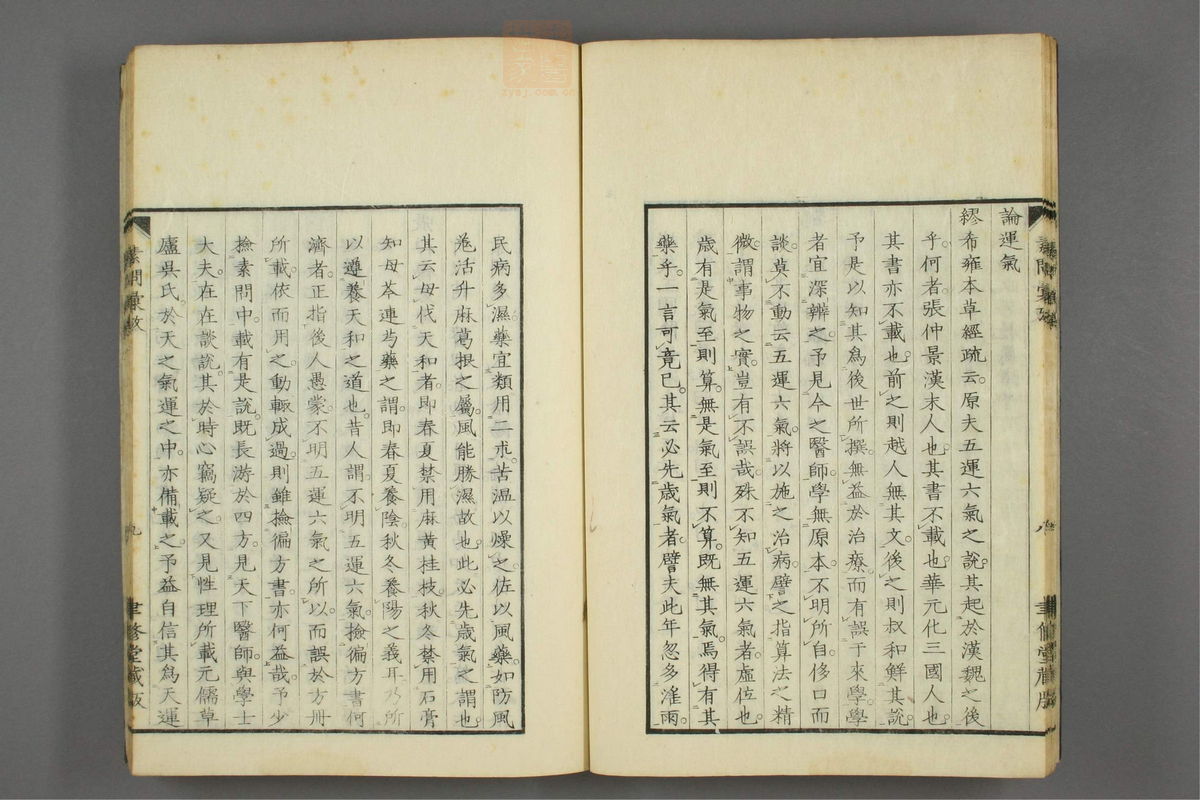 論運氣
繆希雍本草經疏云原夫五運六氣之說其起於漢魏之後
乎何者張仲景漢末人也其書不載也華元化三國人也
其書亦不載也前之則越人無其文後之則叔和鮮其說
予是以知其爲後世所撰無益於治療而有誤于來學學
者宜深辨之予見今之醫師學無原本不明所自侈口而
談莫不動云五運六氣將以施之治病譬之指算法之精
微謂事物之實豈有不誤哉殊不知五運六氣者虛位也
歲有是氣至則算無是氣至則不算既無其氣焉得有其
藥乎一言可竟已其云必先歲氣者譬夫此年忽多淫雨
民病多濕藥宜類用二朮苦温以燥之佐以風藥如防風
羌活升麻葛根之屬風能勝濕故也此必先歲氣之謂也
其云毋伐天和者即春夏禁用麻黃桂枝秋冬禁用石膏
知母芩連芍藥之謂即春夏養陰秋冬養陽之義耳乃所
以遵養天和之道也昔人謂不明五運六氣撿徧方書何
濟者正指後人愚蒙不明五運六氣之所以而誤於方冊
所載依而用之動輒成過則雖撿徧方書亦何益哉予少
撿素問中載有是說既長游於四方見天下醫師與學士
大夫在在談說其於時心竊疑之又見性理所載元儒草
廬吳氏於天之氣運之中亦備載之予益自信其爲天運
素問彙攷
八
聿修堂藏版
素問彙攷
九
聿修堂藏版
zysj.com.cn